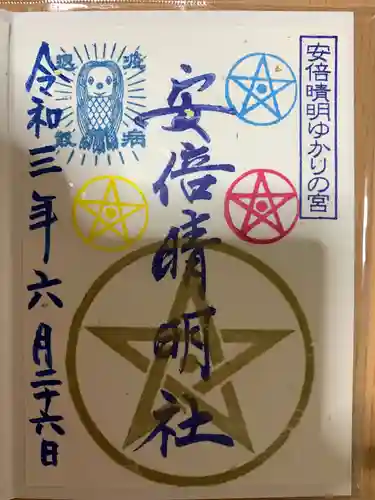 安倍晴明ゆかりの宮
安倍晴明社
疫病
退散
令和三年六月二十六日